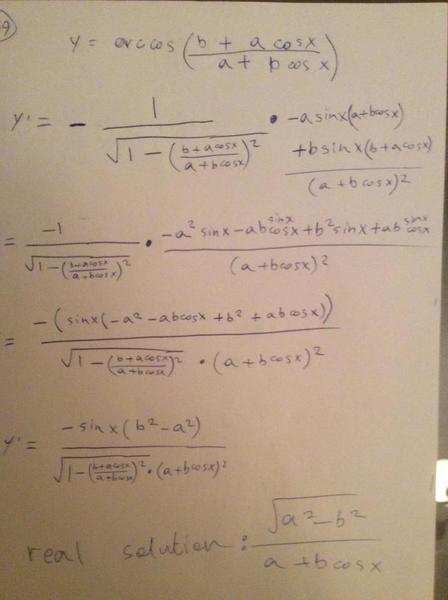 9
y = arccos((b + a cosx)/(a + b cosx))
y' = - 1/√(1 - ((b+acosx)/(a+bcosx))²) • (-asinx(a+bcosx) +bsinx(b+acosx))/(a+bcosx)²
= -1/√(1-((b+acosx)/(a+bcosx))²) • (-a²sinx-abcosx sinx+b²sinx+ab sinx cosx)/(a+bcosx)²
= -(sinx(-a²-abcosx+b²+abcosx))/(√(1-((b+acosx)/(a+bcosx))²) • (a+bcosx)²)
y' = -sinx(b²-a²)/(√(1-((b+acosx)/(a+bcosx))²) • (a+bcosx)²)
real solution: √(a²-b²)/(a+bcosx)